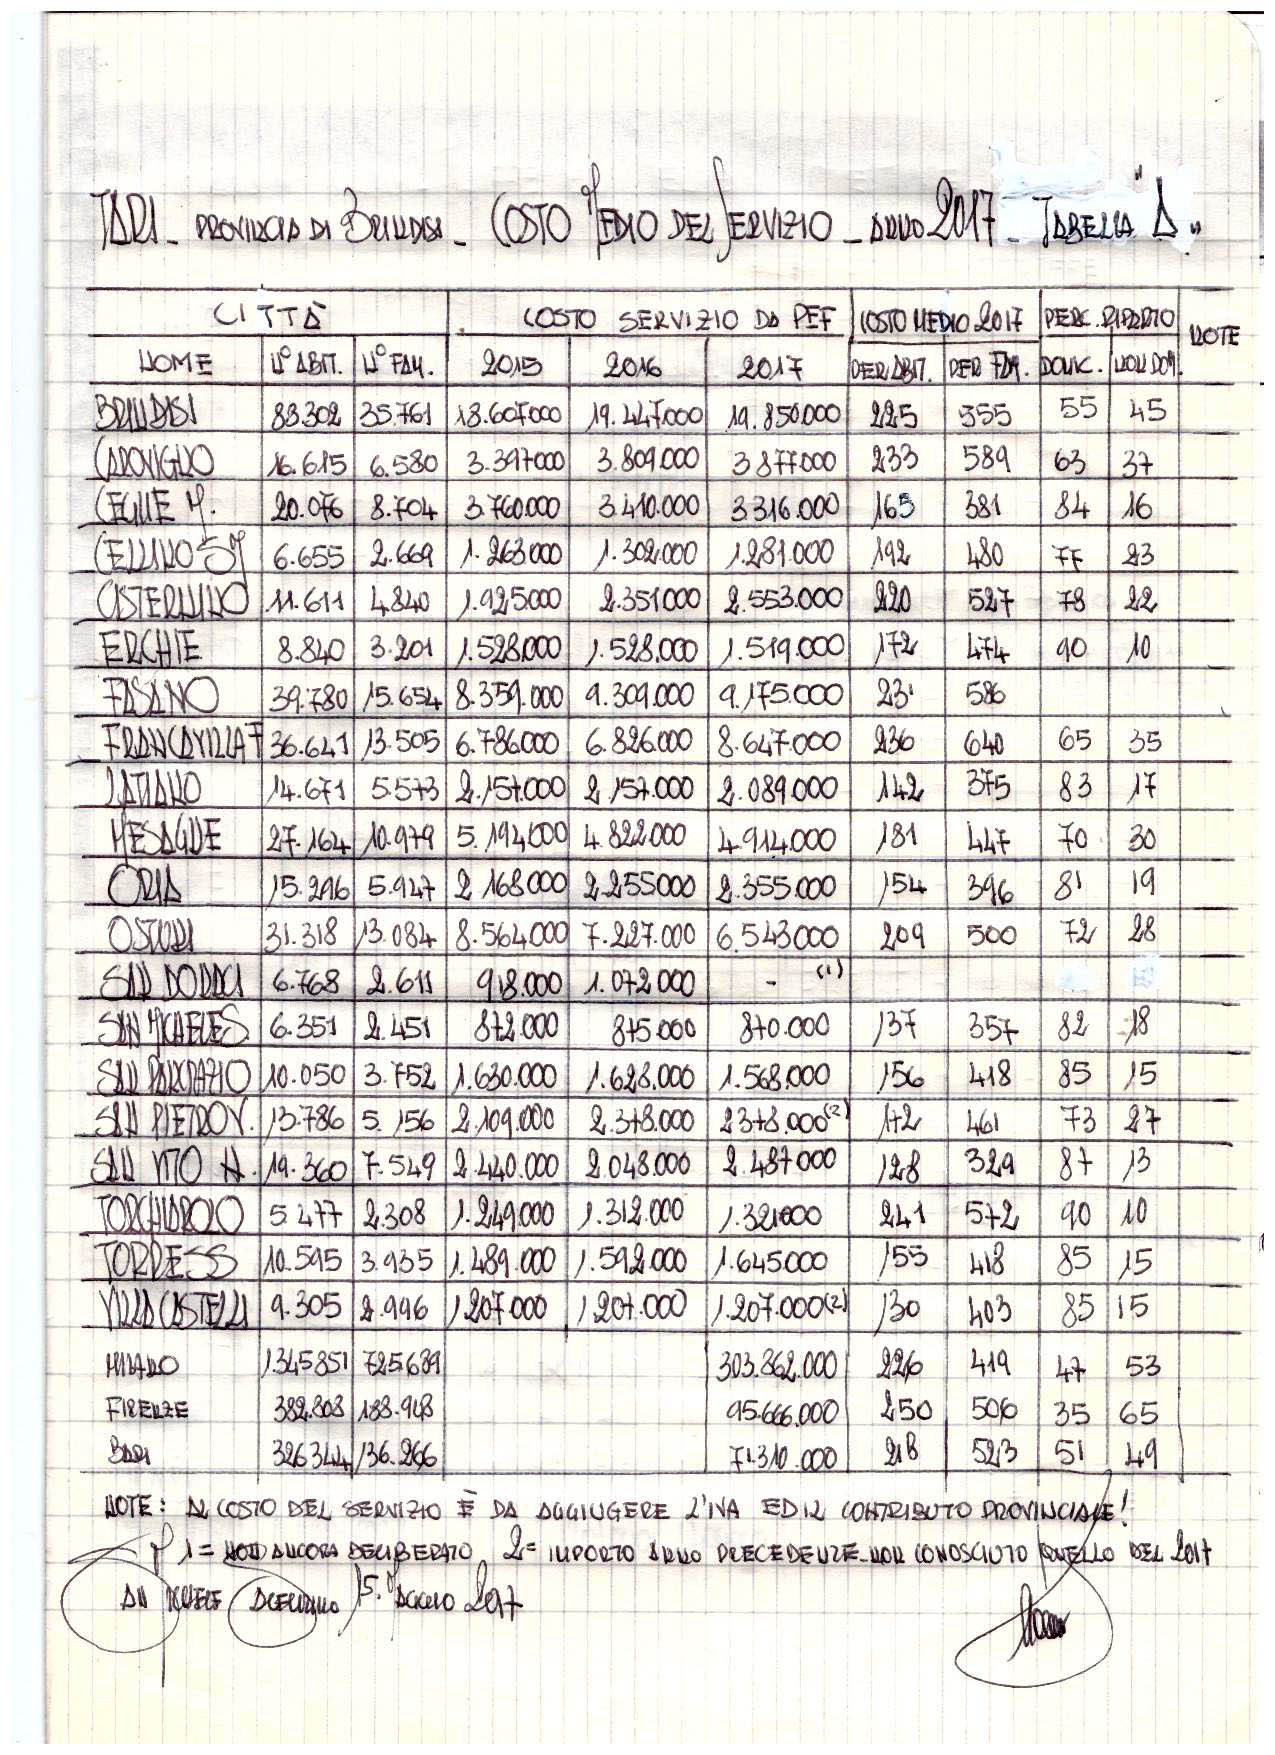 TARI - PROVINCIA DI BRINDISI - COSTO MEDIO DEL SERVIZIO - ANNO 2017 - TABELLA "A"
CITTÀ COSTO SERVIZIO DA PEF COSTO MEDIO 2017 PERC. RIPARTO NOTE
NOME N° ABIT. N° FAM. 2015 2016 2017 PER ABIT. PER FAM. DOMC. NON DOM.
BRINDISI 88.302 35.761 18.607.000 19.447.000 19.850.000 225 555 55 45
CAROVIGNO 16.615 6.580 3.397.000 3.809.000 3.877.000 233 589 63 37
CEGLIE M. 20.076 8.704 3.760.000 3.410.000 3.316.000 165 381 84 16
CELLINO S.M. 6.655 2.669 1.263.000 1.302.000 1.281.000 192 480 77 23
CISTERNINO 11.611 4.840 1.925.000 2.351.000 2.553.000 220 527 78 22
ERCHIE 8.840 3.201 1.528.000 1.528.000 1.519.000 172 474 90 10
FASANO 39.780 15.654 8.359.000 9.309.000 9.175.000 231 586
FRANCAVILLA F 36.641 13.505 6.786.000 6.826.000 8.647.000 236 640 65 35
LATIANO 14.671 5.573 2.157.000 2.157.000 2.089.000 142 375 83 17
MESAGNE 27.164 10.979 5.194.000 4.822.000 4.914.000 181 447 70 30
ORIA 15.296 5.947 2.168.000 2.255.000 2.355.000 154 396 81 19
OSTUNI 31.318 13.084 8.564.000 7.227.000 6.543.000 209 500 72 28
SAN DONACI 6.768 2.611 918.000 1.072.000 - (1)
SAN MICHELE S. 6.351 2.451 872.000 875.000 870.000 137 357 82 18
SAN PANCRAZIO 10.050 3.752 1.630.000 1.628.000 1.568.000 156 418 85 15
SAN PIETRO V. 13.786 5.156 2.109.000 2.378.000 2.378.000 (2) 172 461 73 27
SAN VITO N. 19.360 7.549 2.440.000 2.048.000 2.487.000 128 329 87 13
TORCHIAROLO 5.477 2.308 1.249.000 1.312.000 1.321.000 241 572 90 10
TORRE SS 10.595 3.935 1.489.000 1.592.000 1.645.000 155 418 85 15
VILLA CASTELLI 9.305 2.996 1.207.000 1.207.000 1.207.000 (2) 130 403 85 15
MILANO 1.345.851 725.639 303.862.000 226 419 47 53
FIRENZE 382.808 188.948 95.666.000 250 506 35 65
BARI 326.344 136.266 71.310.000 218 523 51 49
NOTE: AL COSTO DEL SERVIZIO È DA AGGIUGERE L'IVA ED IL CONTRIBUTO PROVINCIALE!
1 = NON ANCORA DELIBERATO 2 = IMPORTO ANNO PRECEDENTE - NON CONOSCIUTO QUELLO DEL 2017
15. MAGGIO 2017